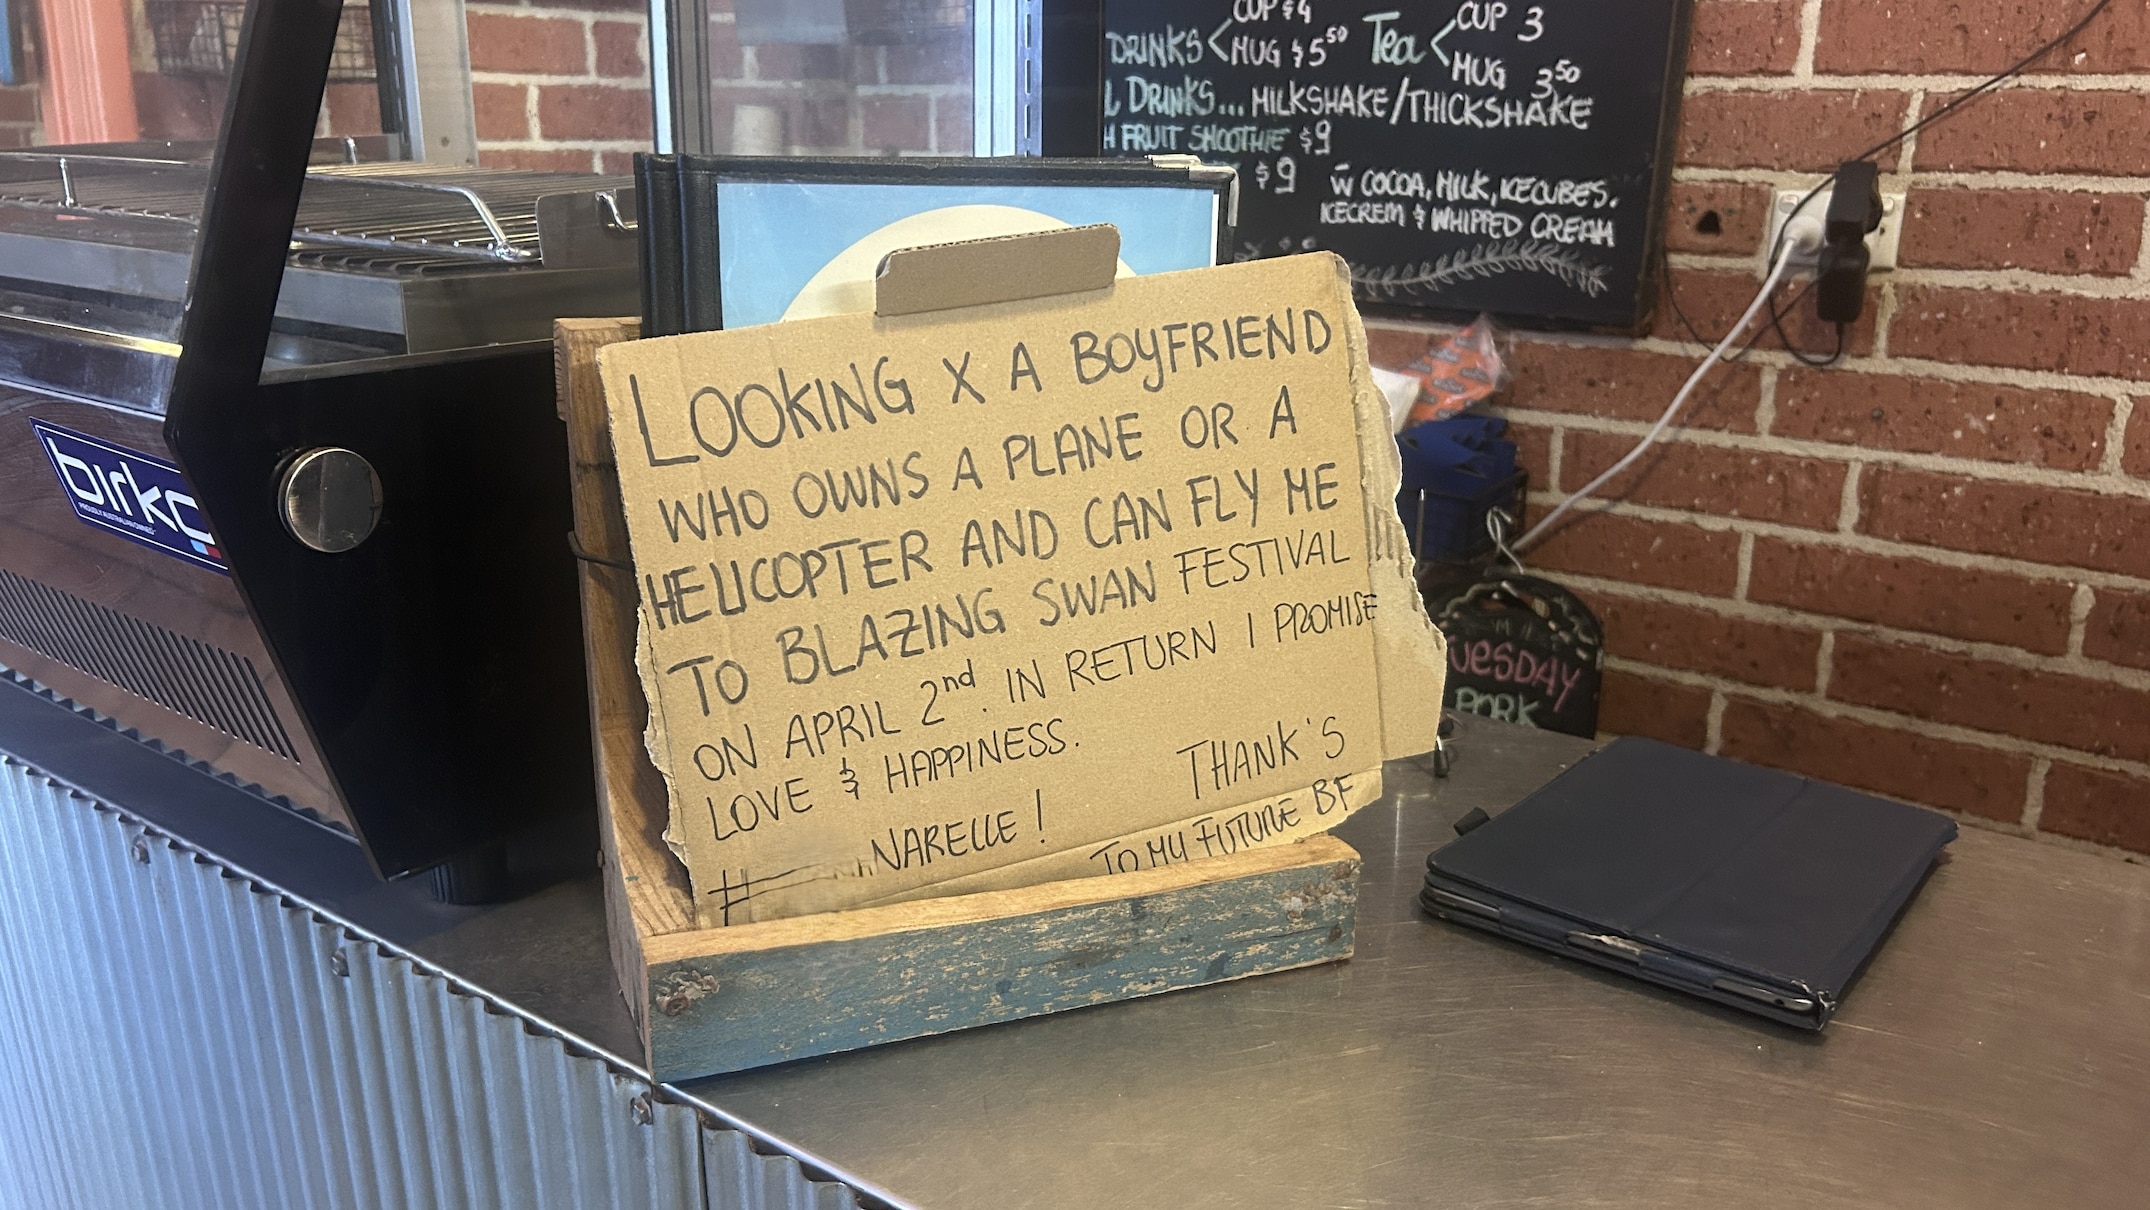 CUP $4
CUP 3
DRINKS < MUG $5⁵⁰ Tea <
MUG 3⁵⁰
DRINKS... MILKSHAKE/THICKSHAKE
FRUIT SMOOTHIE $9
$9 W COCOA, MILK, ICECUBES.
ICECREM & WHIPPED CREAM
birko
PROUDLY AUSTRALIAN OWNED
LOOKING X A BOYFRIEND
WHO OWNS A PLANE OR A
HELICOPTER AND CAN FLY ME
TO BLAZING SWAN FESTIVAL
ON APRIL 2nd. IN RETURN I PROMISE
LOVE & HAPPINESS.
THANK'S
NARELLE!
TO MY FUTURE BF
TUESDAY
PORK